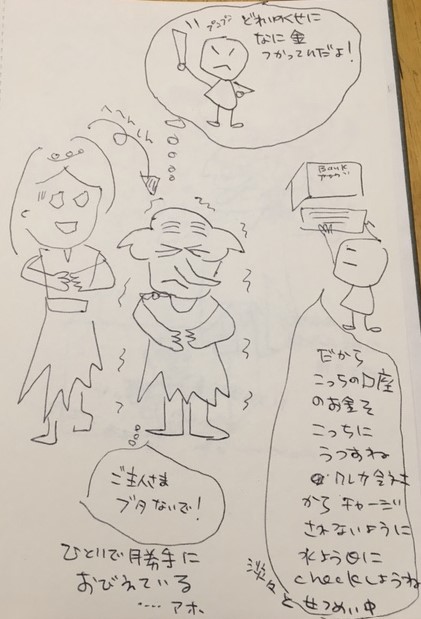 プンプン
どれいのくせに
なに金
つかってんだよ!
へんしん
BANK
だから
こっちの口座
のお金を
こっちに
うつすね
クレカ会社
から チャージ
されないように
水よう日に
checkしようね
淡々と せつめい中
ご主人さま
ブタないで!
ひとりで勝手に
おびえている
.... アホ。